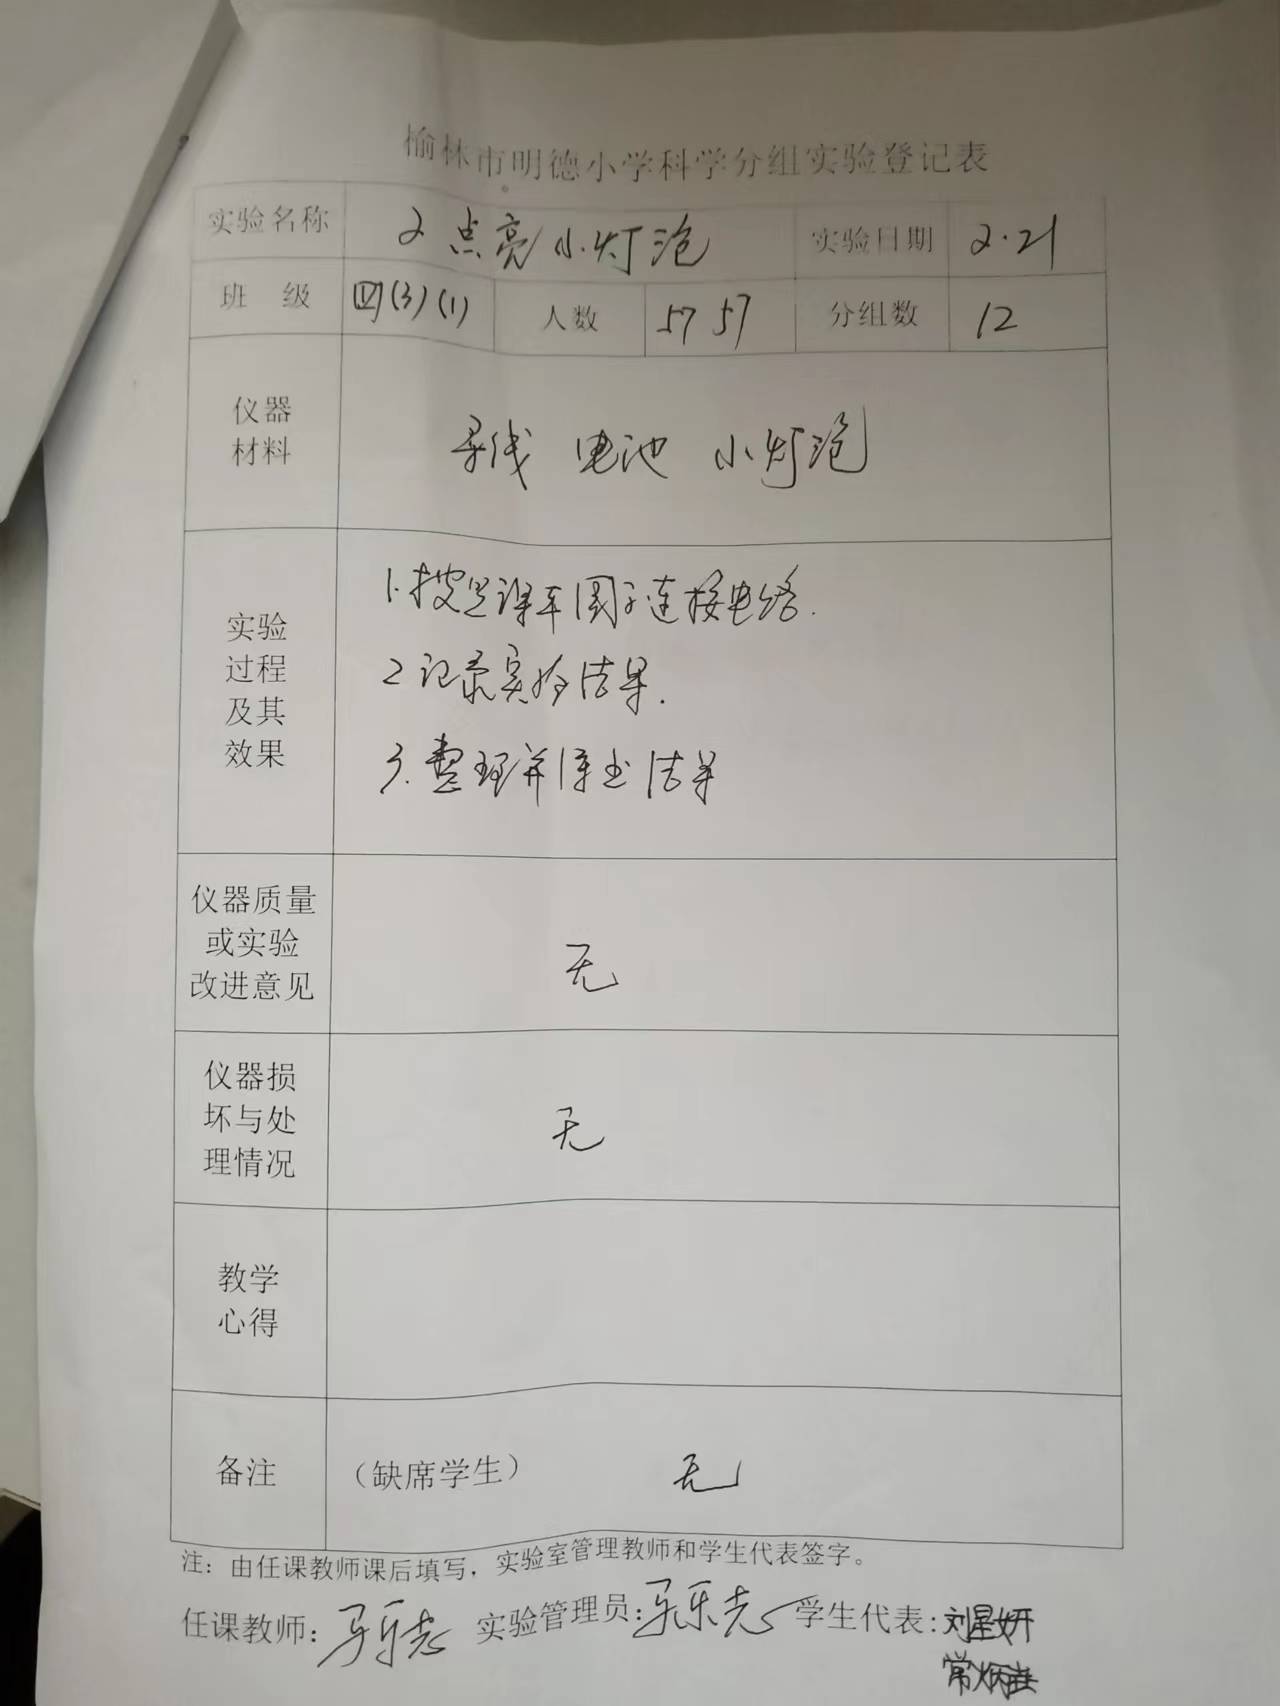 榆林市明德小学科学分组实验登记表
实验名称 2 点亮小灯泡 实验日期 2.21
班 级 四(3)(1) 人数 57 57 分组数 12
仪器
材料
导线 电池 小灯泡
实验
过程
及其
效果
1.按照课本图示连接电路.
2 记录实验结果.
3.整理并得出结果
仪器质量
或实验
改进意见
无
仪器损
坏与处
理情况
无
教学
心得
备注 (缺席学生) 无
注:由任课教师课后填写,实验室管理教师和学生代表签字。
任课教师:马乐志 实验管理员:马乐志 学生代表:刘星妍
常炳